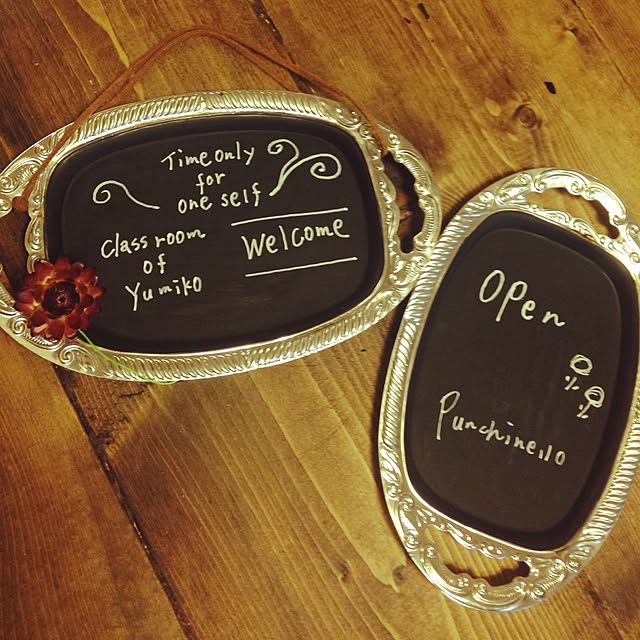 Time only
for
one self
Class room
of
Yumiko
Welcome
Open
Punchinello